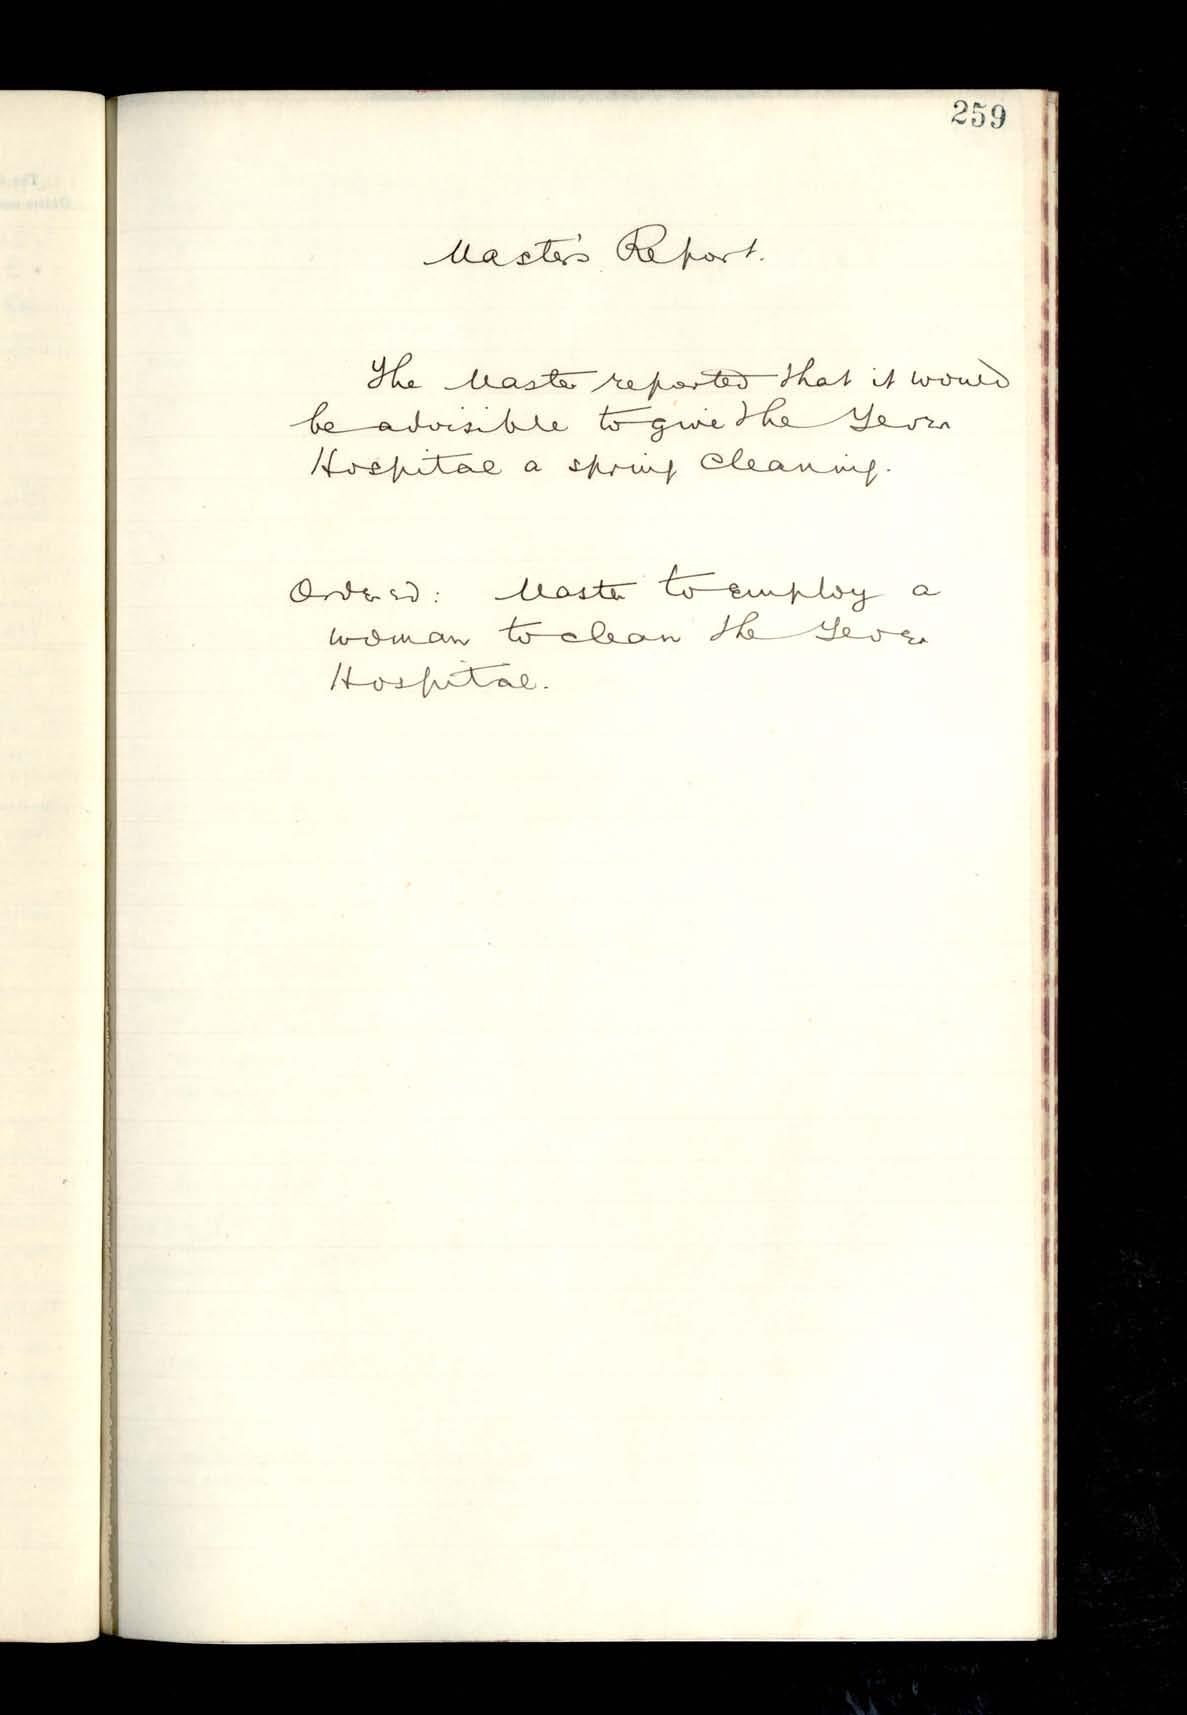 259
Master's Report.
The Master reported that it would
be advisible to give the Fever
Hospital a spring cleaning.
Ordered: Master to employ a
woman to clean the Fever
Hospital.